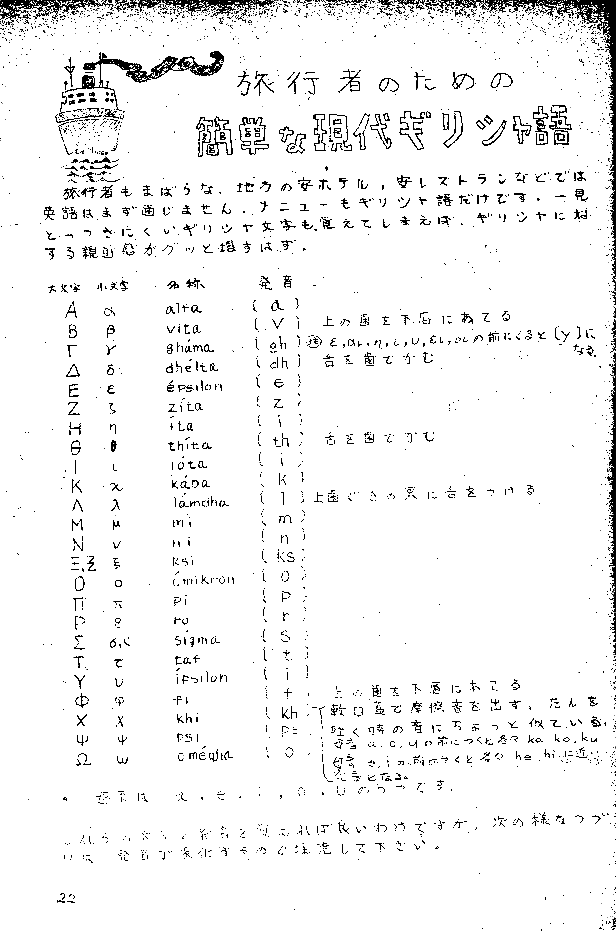 旅行者のための
簡単な現代ギリシャ語
旅行者もまばらな、地方の安ホテル、安レストランなどでは
英語はまず通じません。メニューもギリシャ語だけです。一見
とっつきにくいギリシャ文字も覚えてしまえば、ギリシャに対
する親近感がグッと増すはず。
大文字 小文字 名称 発音
Α α alfa (a)
Β β vita (v) 上の歯を下唇にあてる
Γ γ gháma (gh) の前にくると〔y〕になる
Δ δ dhélta (dh) 舌を歯でかむ
Ε ε épsilon (e)
Ζ ζ zíta (z)
Η η íta (i)
Θ θ thíta (th) 舌を歯でかむ
Ι ι ióta (i)
Κ κ kápa (k)
Λ λ lámdha (l) 上歯ぐきの裏に舌をつける
Μ μ mi (m)
Ν ν ni (n)
Ξ,Ξ ξ ksi (ks)
Ο ο ómikron (o)
Π π pi (p)
Ρ ρ ro (r)
Σ σ,ς sigma (s)
Τ τ taf (t)
Υ υ ípsilon (i)
Φ φ fi (f) 上の歯を下唇にあてる
Χ χ khi (kh) 軟口蓋で摩擦音を出す。たんを
吐く時の音にちょっと似ている。
Ψ ψ psi (ps) a, o, u の前につくと各々 ka, ko, ku
e, i の前につくと各々 he, hi に近い
Ω ω oméga (o) 発音となる。
の5つです。
ば良いわけですが、次の様なつづ
りは、発音が変化するので注意して下さい。
22